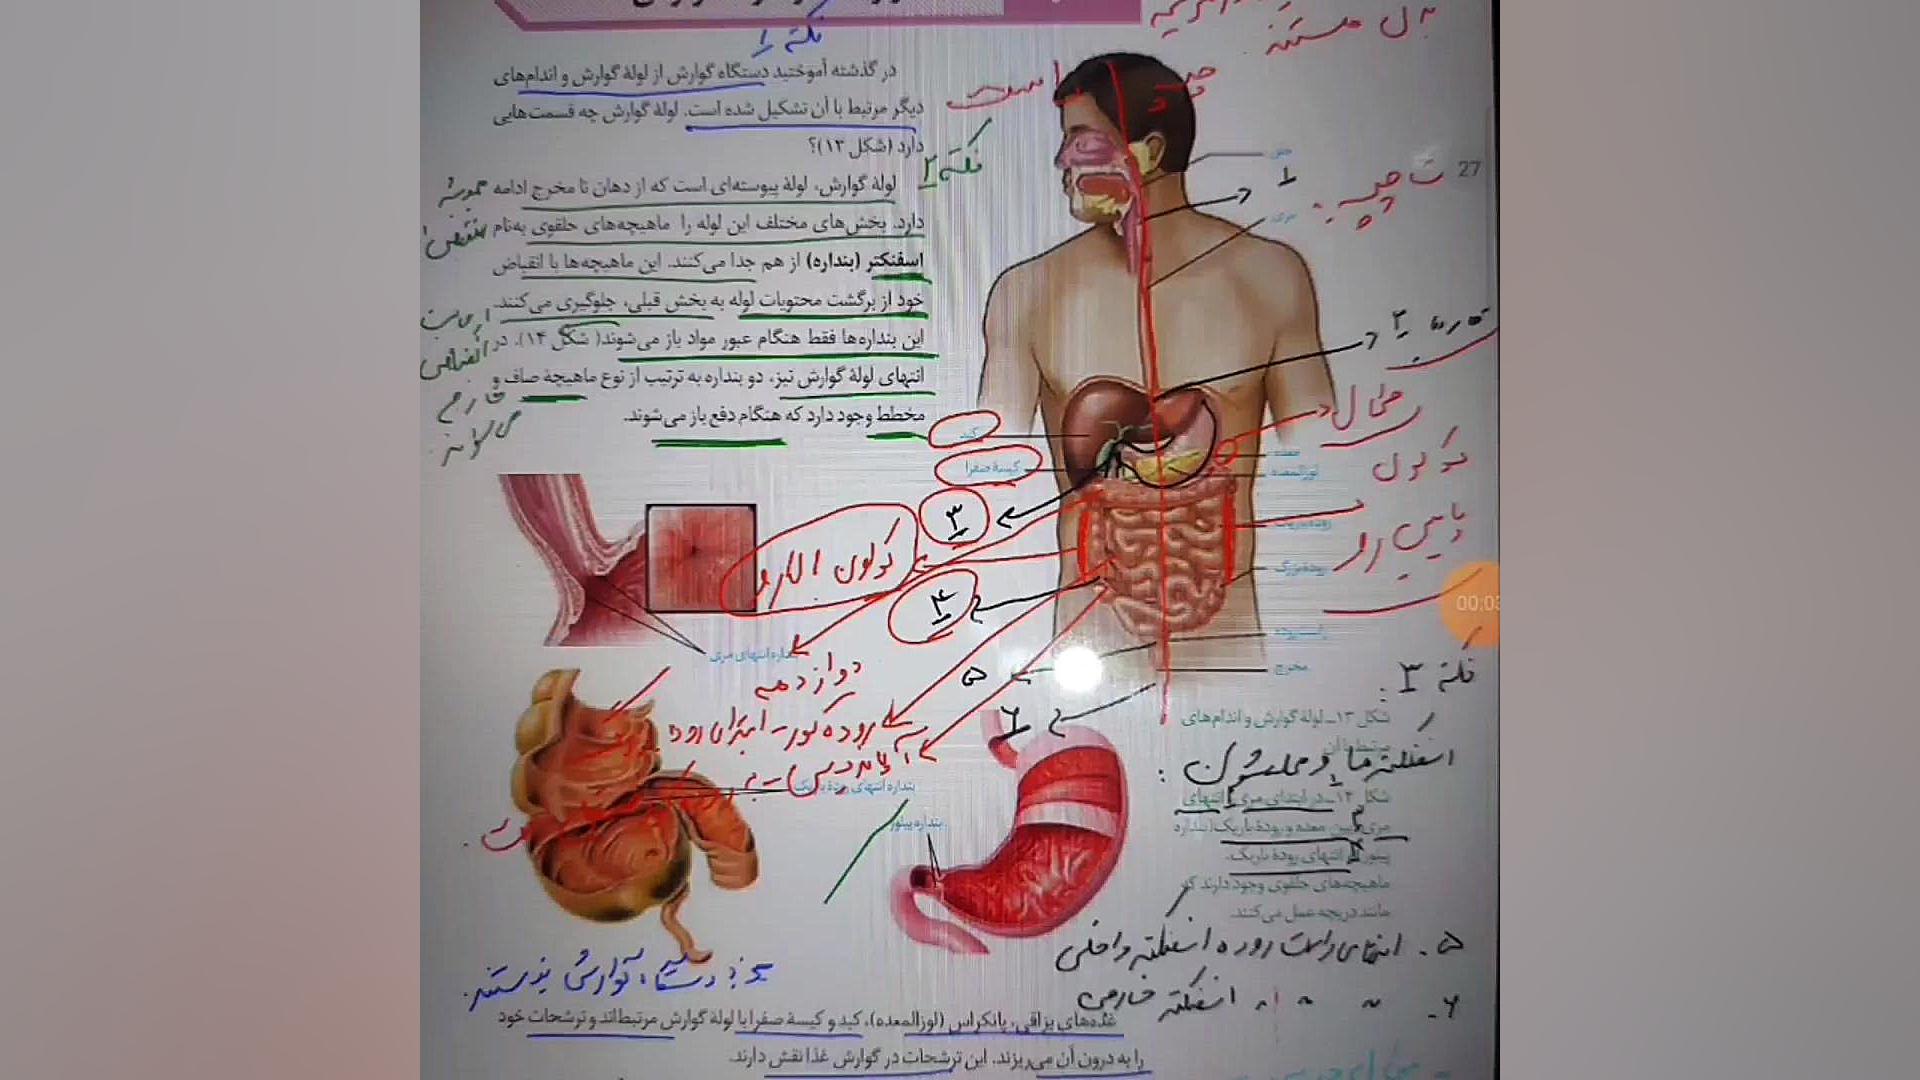 نکته ۱
در گذشته آموختید دستگاه گوارش از لولهٔ گوارش و اندام‌های
دیگر مرتبط با آن تشکیل شده است. لولهٔ گوارش چه قسمت‌هایی
دارد (شکل ۱۳)؟
نکته ۲
لولهٔ گوارش، لولهٔ پیوسته‌ای است که از دهان تا مخرج ادامه
دارد. بخش‌های مختلف این لوله را ماهیچه‌های حلقوی به‌نام
اسفنکتر (بنداره) از هم جدا می‌کنند. این ماهیچه‌ها با انقباض
خود از برگشت محتویات لوله به بخش قبلی، جلوگیری می‌کنند.
این بنداره‌ها فقط هنگام عبور مواد باز می‌شوند( شکل ۱۴). در
انتهای لولهٔ گوارش نیز، دو بنداره به ترتیب از نوع ماهیچهٔ صاف و
مخطط وجود دارد که هنگام دفع باز می‌شوند.
راست
چپ
27
حلق
۱
مری
۲
کبد
کیسهٔ صفرا
معده
لوزالمعده
رودهٔ باریک
رودهٔ بزرگ
راست‌روده
مخرج
کولون
پایین رو
۳
کولون بالارو
۴
00:03
بنداره انتهای مری
دوازدهه
۵
۶
روده کور - ابتدای روده
آپاندیس
بنداره انتهای رودهٔ باریک
بنداره پیلور
نکته ۳ :
شکل ۱۳ــ لولهٔ گوارش و اندام‌های
مرتبط با آن
اسفنکترها و محلشون :
شکل ۱۴ــ در ابتدای مری، انتهای
مری، بین معده و رودهٔ باریک( بنداره
پیلور) و انتهای رودهٔ باریک،
ماهیچه‌های حلقوی وجود دارند که
مانند دریچه عمل می‌کنند.
۵ـ انتهای راست روده اسفنکتر داخلی
۶ـ " " " اسفنکتر خارجی
جزء دستگاه گوارش نیستند.
غده‌های بزاقی، پانکراس (لوزالمعده)، کبد و کیسهٔ صفرا با لولهٔ گوارش مرتبط‌اند و ترشحات خود
را به درون آن می‌ریزند. این ترشحات در گوارش غذا نقش دارند.